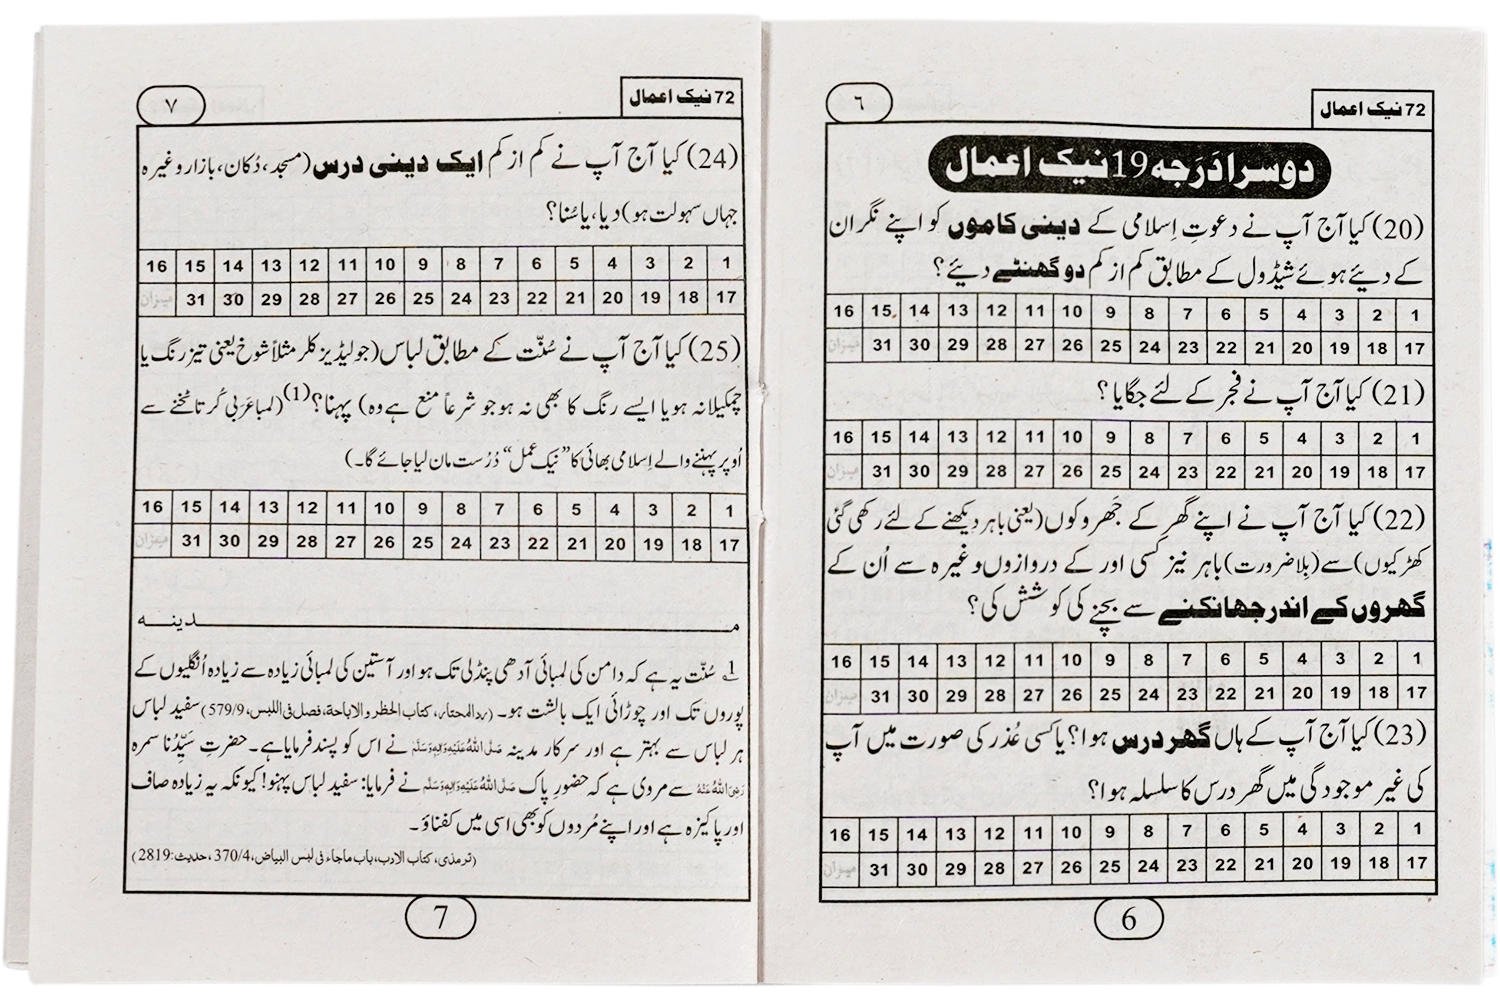 72 نیک اعمال
٦
دوسرا دَرَجہ 19 نیک اعمال
(20) کیا آج آپ نے دعوتِ اِسلامی کے دینی کاموں کو اپنے نگران
کے دیئے ہوئے شیڈول کے مطابق کم از کم دو گھنٹے دیئے؟
1 2 3 4 5 6 7 8 9 10 11 12 13 14 15 16
17 18 19 20 21 22 23 24 25 26 27 28 29 30 31 میزان
(21) کیا آج آپ نے فجر کے لئے جگایا؟
1 2 3 4 5 6 7 8 9 10 11 12 13 14 15 16
17 18 19 20 21 22 23 24 25 26 27 28 29 30 31 میزان
(22) کیا آج آپ نے اپنے گھر کے جَھروکوں (یعنی باہر دیکھنے کے لئے رکھی گئی
کھڑکیوں) سے (بِلا ضرورت) باہر نیز کسی اور کے دروازوں وغیرہ سے اُن کے
گھروں کے اندر جھانکنے سے بچنے کی کوشش کی؟
1 2 3 4 5 6 7 8 9 10 11 12 13 14 15 16
17 18 19 20 21 22 23 24 25 26 27 28 29 30 31 میزان
(23) کیا آج آپ کے ہاں گھر درس ہوا؟ یا کسی عُذر کی صورت میں آپ
کی غیر موجودگی میں گھر درس کا سلسلہ ہوا؟
1 2 3 4 5 6 7 8 9 10 11 12 13 14 15 16
17 18 19 20 21 22 23 24 25 26 27 28 29 30 31 میزان
6
72 نیک اعمال
٧
(24) کیا آج آپ نے کم از کم ایک دینی درس (مسجد، دُکان، بازار وغیرہ
جہاں سہولت ہو) دیا، یا سُنا؟
1 2 3 4 5 6 7 8 9 10 11 12 13 14 15 16
17 18 19 20 21 22 23 24 25 26 27 28 29 30 31 میزان
(25) کیا آج آپ نے سُنّت کے مطابق لباس (جو لیڈیز کلر مثلاً شوخ یعنی تیز رنگ یا
چمکیلا نہ ہو یا ایسے رنگ کا بھی نہ ہو جو شرعاً منع ہے وہ) پہنا؟(1) (لمبا عَرَبی کُرتا ٹخنے سے
اُوپر پہننے والے اِسلامی بھائی کا ”نیک عمل“ دُرُست مان لیا جائے گا۔)
1 2 3 4 5 6 7 8 9 10 11 12 13 14 15 16
17 18 19 20 21 22 23 24 25 26 27 28 29 30 31 میزان
مدینہ
1 سُنّت یہ ہے کہ دامن کی لمبائی آدھی پنڈلی تک ہو اور آستین کی لمبائی زیادہ سے زیادہ اُنگلیوں کے
پوروں تک اور چوڑائی ایک بالشت ہو۔ (ردالمحتار، کتاب الحظر والاباحۃ، فصل فی اللبس، 579/9) سفید لباس
ہر لباس سے بہتر ہے اور سرکار مدینہ صَلَّی اللہُ عَلَیْہِ وَاٰلِہٖ وَسَلَّم نے اس کو پسند فرمایا ہے۔ حضرتِ سَیِّدُنا سمرہ
رَضِیَ اللہُ عَنْہُ سے مروی ہے کہ حضورِ پاک صَلَّی اللہُ عَلَیْہِ وَاٰلِہٖ وَسَلَّم نے فرمایا: سفید لباس پہنو! کیونکہ یہ زیادہ صاف
اور پاکیزہ ہے اور اپنے مُردوں کو بھی اسی میں کفناؤ۔
(ترمذی، کتاب الادب، باب ماجاء فی لبس البیاض، 370/4، حدیث:2819)
7